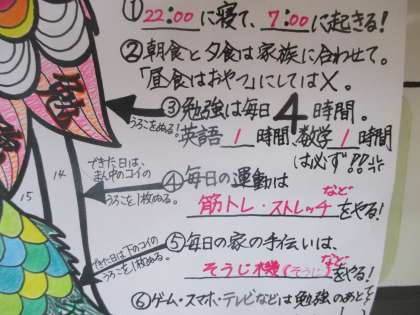 ① 22:00に寝て、7:00に起きる!
② 朝食と夕食は家族に合わせて。
「昼食はおやつ」にしては×。
③ 勉強は毎日4時間。
うろこをぬる!
英語 1 時間、数学 1 時間
は必ず!!
できた日は、
まん中のコイの
うろこを1枚ぬる。
14
15
④ 毎日の運動は
筋トレ・ストレッチなどをやる!
⑤ 毎日の家の手伝いは、
できた日は下のコイの
うろこを1枚ぬる。
そうじ機(そうじ)などをやる!
⑥ ゲーム・スマホ・テレビなどは勉強のあとで